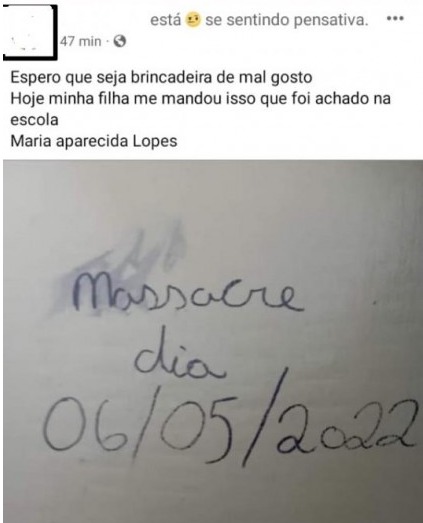 está 🤨 se sentindo pensativa. ...
47 min ·
Espero que seja brincadeira de mal gosto
Hoje minha filha me mandou isso que foi achado na
escola
Maria aparecida Lopes
Massacre
dia
06/05/2022